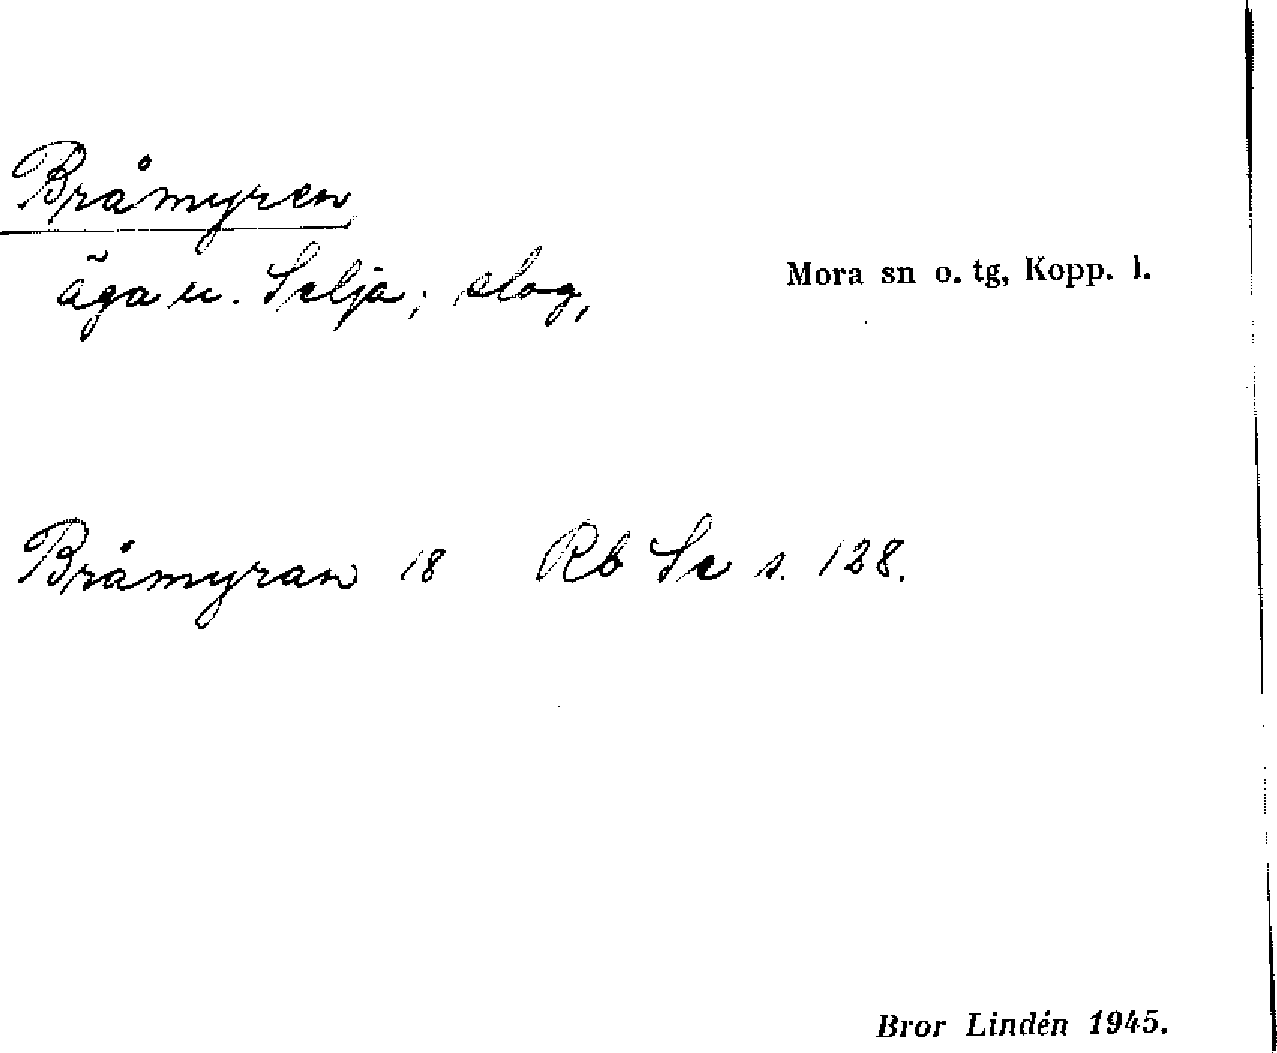 Bråmyren
Mora sn o. tg, Kopp. l.
äga u. Selja; slog,
Bråmyran 18 Rb Se s. 128.
Bror Lindén 1945.